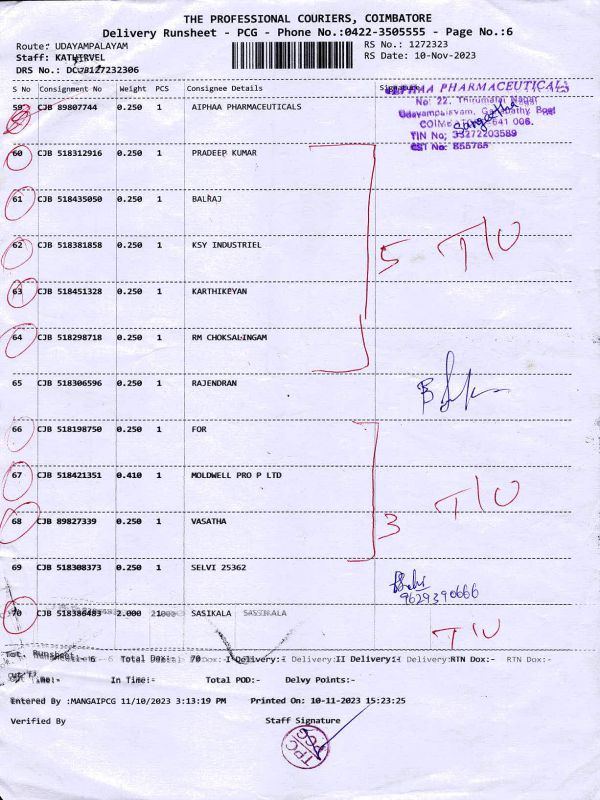 THE PROFESSIONAL COURIERS, COIMBATORE
Delivery Runsheet - PCG - Phone No.:0422-3505555 - Page No.:6
Route: UDAYAMPALAYAM RS No.: 1272323
Staff: KATHIRVEL RS Date: 10-Nov-2023
DRS No.: DCJB127232306
S No Consignment No Weight PCS Consignee Details Signature
AIPHAA PHARMACEUTICALS
59 CJB 89807744 0.250 1 AIPHAA PHARMACEUTICALS
No: 22, Thirumalai Nagar
Udayampalayam, Post
641 006.
TIN No; 33272203589
CST No: 855765
60 CJB 518312916 0.250 1 PRADEEP KUMAR
61 CJB 518435050 0.250 1 BALRAJ
62 CJB 518381858 0.250 1 KSY INDUSTRIEL
5 T/O
63 CJB 518451328 0.250 1 KARTHIKEYAN
64 CJB 518298718 0.250 1 RM CHOKSALINGAM
65 CJB 518306596 0.250 1 RAJENDRAN
66 CJB 518198750 0.250 1 FOR
67 CJB 518421351 0.410 1 MOLDWELL PRO P LTD
T/O
68 CJB 89827339 0.250 1 VASATHA
3
69 CJB 518308373 0.250 1 SELVI 25362
9629390666
70 CJB 518386483 2.000 SASIKALA SASIKALA
T/O
Tot. Runsheet:- 6 Total Dox:- 70 Delivery:I Delivery:II Delivery: RTN Dox:- RTN Dox:-
In Time:- Total POD:- Delvy Points:-
Entered By :MANGAIPCG 11/10/2023 3:13:19 PM Printed On: 10-11-2023 15:23:25
Verified By Staff Signature
TPC